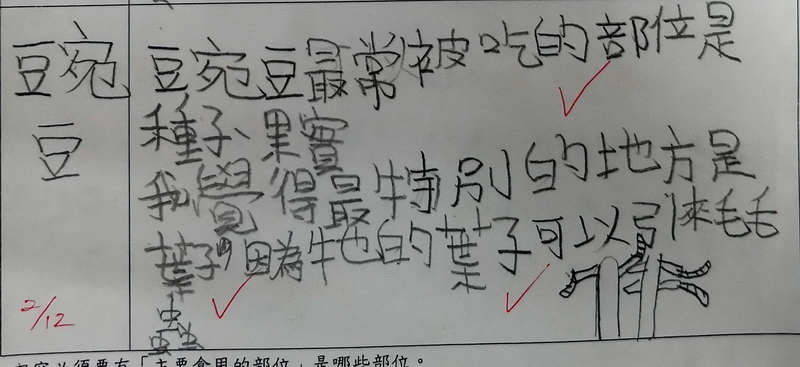 豆宛
豆
豆宛豆最常被吃的部位是
種子、果實
我覺得最特別的地方是
葉子,因為牠的葉子可以引來毛毛
蟲
2/12
內容必須要有「主要食用的部位」是哪些部位。